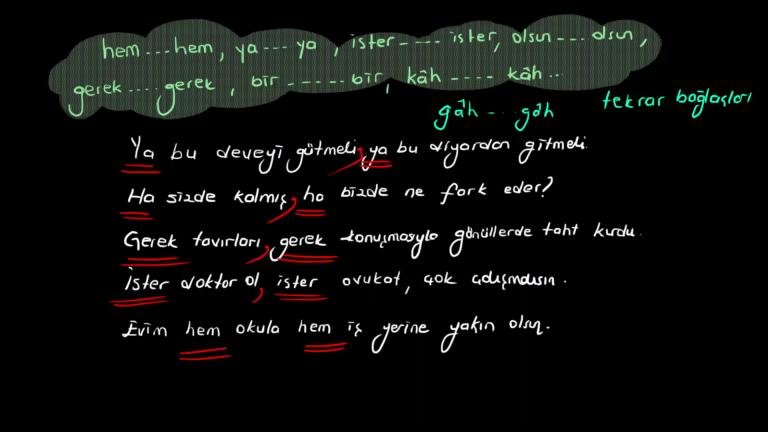 hem...hem, ya---ya, ister----ister, olsun---olsun,
gerek....gerek, bir------bir, kâh----kâh...
gâh-..gâh
tekrar bağlaçları
Ya bu deveyi gütmeli, ya bu diyardan gitmeli.
Ha sizde kalmış, ha bizde ne fark eder?
Gerek tavırları, gerek konuşmasıyla gönüllerde taht kurdu.
İster doktor ol, ister avukat, çok çalışmalısın.
Evim hem okula hem iş yerine yakın olsun.